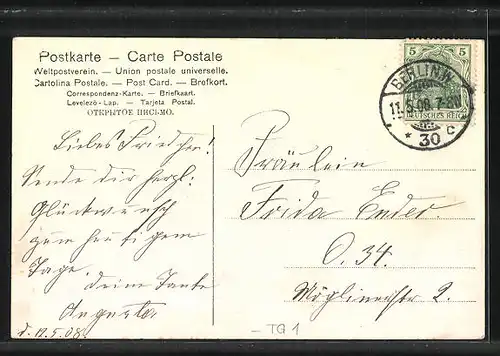 Postkarte — Carte Postale
Weltpostverein. — Union postale universelle.
Cartolina Postale. — Post Card. — Brefkort.
Correspondenz-Karte. — Briefkaart.
Levelező-Lap. — Tarjeta Postal.
ОТКРЫТОЕ ПИСЬМО.
5 5
DEUTSCHES REICH
BERLIN.W.
11.5.08.7-8N
* 30 c
Liebes Friedchen!
Sende dir herzl:
Glückwunsch
zum heutigen
Tage.
deine Tante
Auguste
d. 11.5.08.
Fräulein
Frida Ender.
O. 34.
Möglinerstr 2.
— TG 1